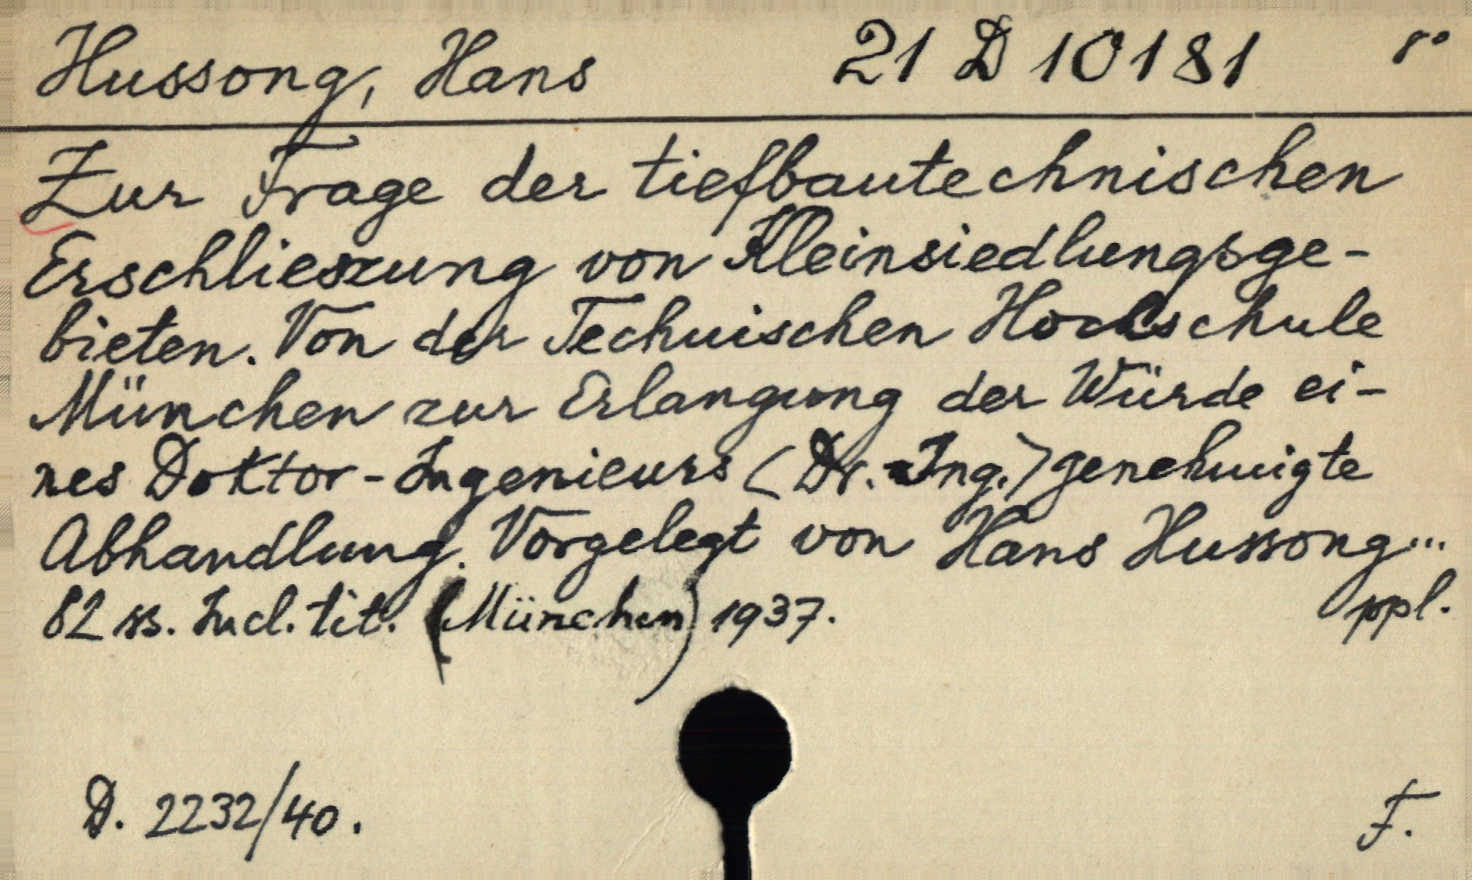 Hussong, Hans 21 D 10181 8°
Zur Frage der tiefbautechnischen
Erschlieszung von Kleinsiedlungsge-
bieten. Von der Technischen Hochschule
München zur Erlangung der Würde ei-
nes Doktor-Ingenieurs (Dr.-Ing.) genehmigte
Abhandlung. Vorgelegt von Hans Hussong...
82 ss. Incl. tit. (München) 1937. ppl.
D. 2232/40. F.